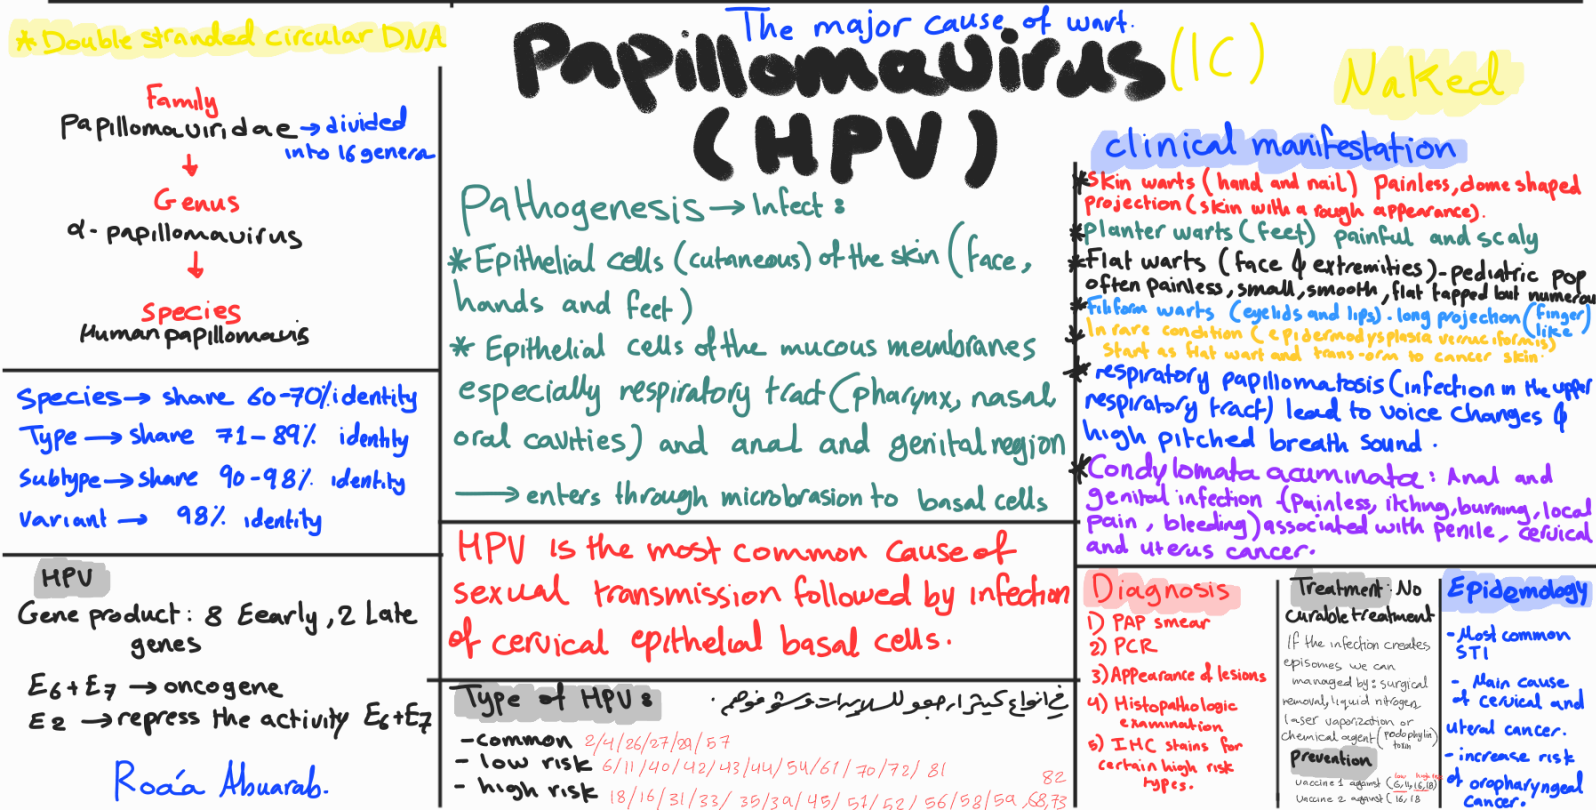 The major cause of wart.
Papillomavirus (IC)
(HPV)
Naked
*Double stranded circular DNA
Family
Papillomaviridae → divided
into 16 genera
Genus
α-papillomavirus
Species
Human papillomavis
Species → share 60-70% identity
Type → share 71-89% identity
Subtype → share 90-98% identity
Variant → 98% identity
HPV
Gene product: 8 Eearly, 2 Late
genes
E6+E7 → oncogene
E2 → repress the activity E6+E7
Roa'a Abuarab.
Pathogenesis → Infect:
*Epithelial cells (cutaneous) of the skin (face,
hands and feet)
* Epithelial cells of the mucous membranes
especially respiratory tract (pharynx, nasal
oral cavities) and anal and genital region
→ enters through microbrasion to basal cells
HPV is the most common cause of
sexual transmission followed by infection
of cervical epithelial basal cells.
Type of HPV:
في انواع كيثر ارجعو للسلايدات وشوفوهم.
-common 2/4/26/27/29/57
- low risk 6/11/40/42/43/44/54/61/70/72/81
- high risk 18/16/31/33/35/39/45/51/52/56/58/59,68,73
82
clinical manifestation
*Skin warts (hand and nail) Painless, dome shaped
projection (skin with a rough appearance).
*planter warts (feet) painful and scaly
*Flat warts (face & extremities)-pediatric pop
often painless, small, smooth, flat tapped but numerou
*Filiform warts (eyelids and lips). long projection (Finger)
like
*In rare condition (epidermodysplasia verruciformis)
start as flat wart and trans-orm to cancer skin.
*respiratory papillomatosis (infection in the upper
respiratory tract) lead to voice changes &
high pitched breath sound.
*Condylomata acuminata: Anal and
genital infection (Painless, itchng, burning, local
pain, bleeding) associated with penile, cervical
and uterus cancer.
Diagnosis
1) PAP smear
2) PCR
3) Appearance of lesions
4) Histopathologic
examination
5) IHC stains for
certain high risk
types.
Treatment: No
curable treatment
If the infection creates
episomes we can
managed by: surgical
removal, liquid nitrogen,
laser vaporization or
chemical agent (podophylin)
toxin
Prevention
low high
vaccine 1 against (6,11,16,18)
Vaccine 2 against (16/18
Epidemology
-Most common
STI
- Main cause
of cervical and
uteral cancer.
- increase risk
of oropharyngeal
cancer.